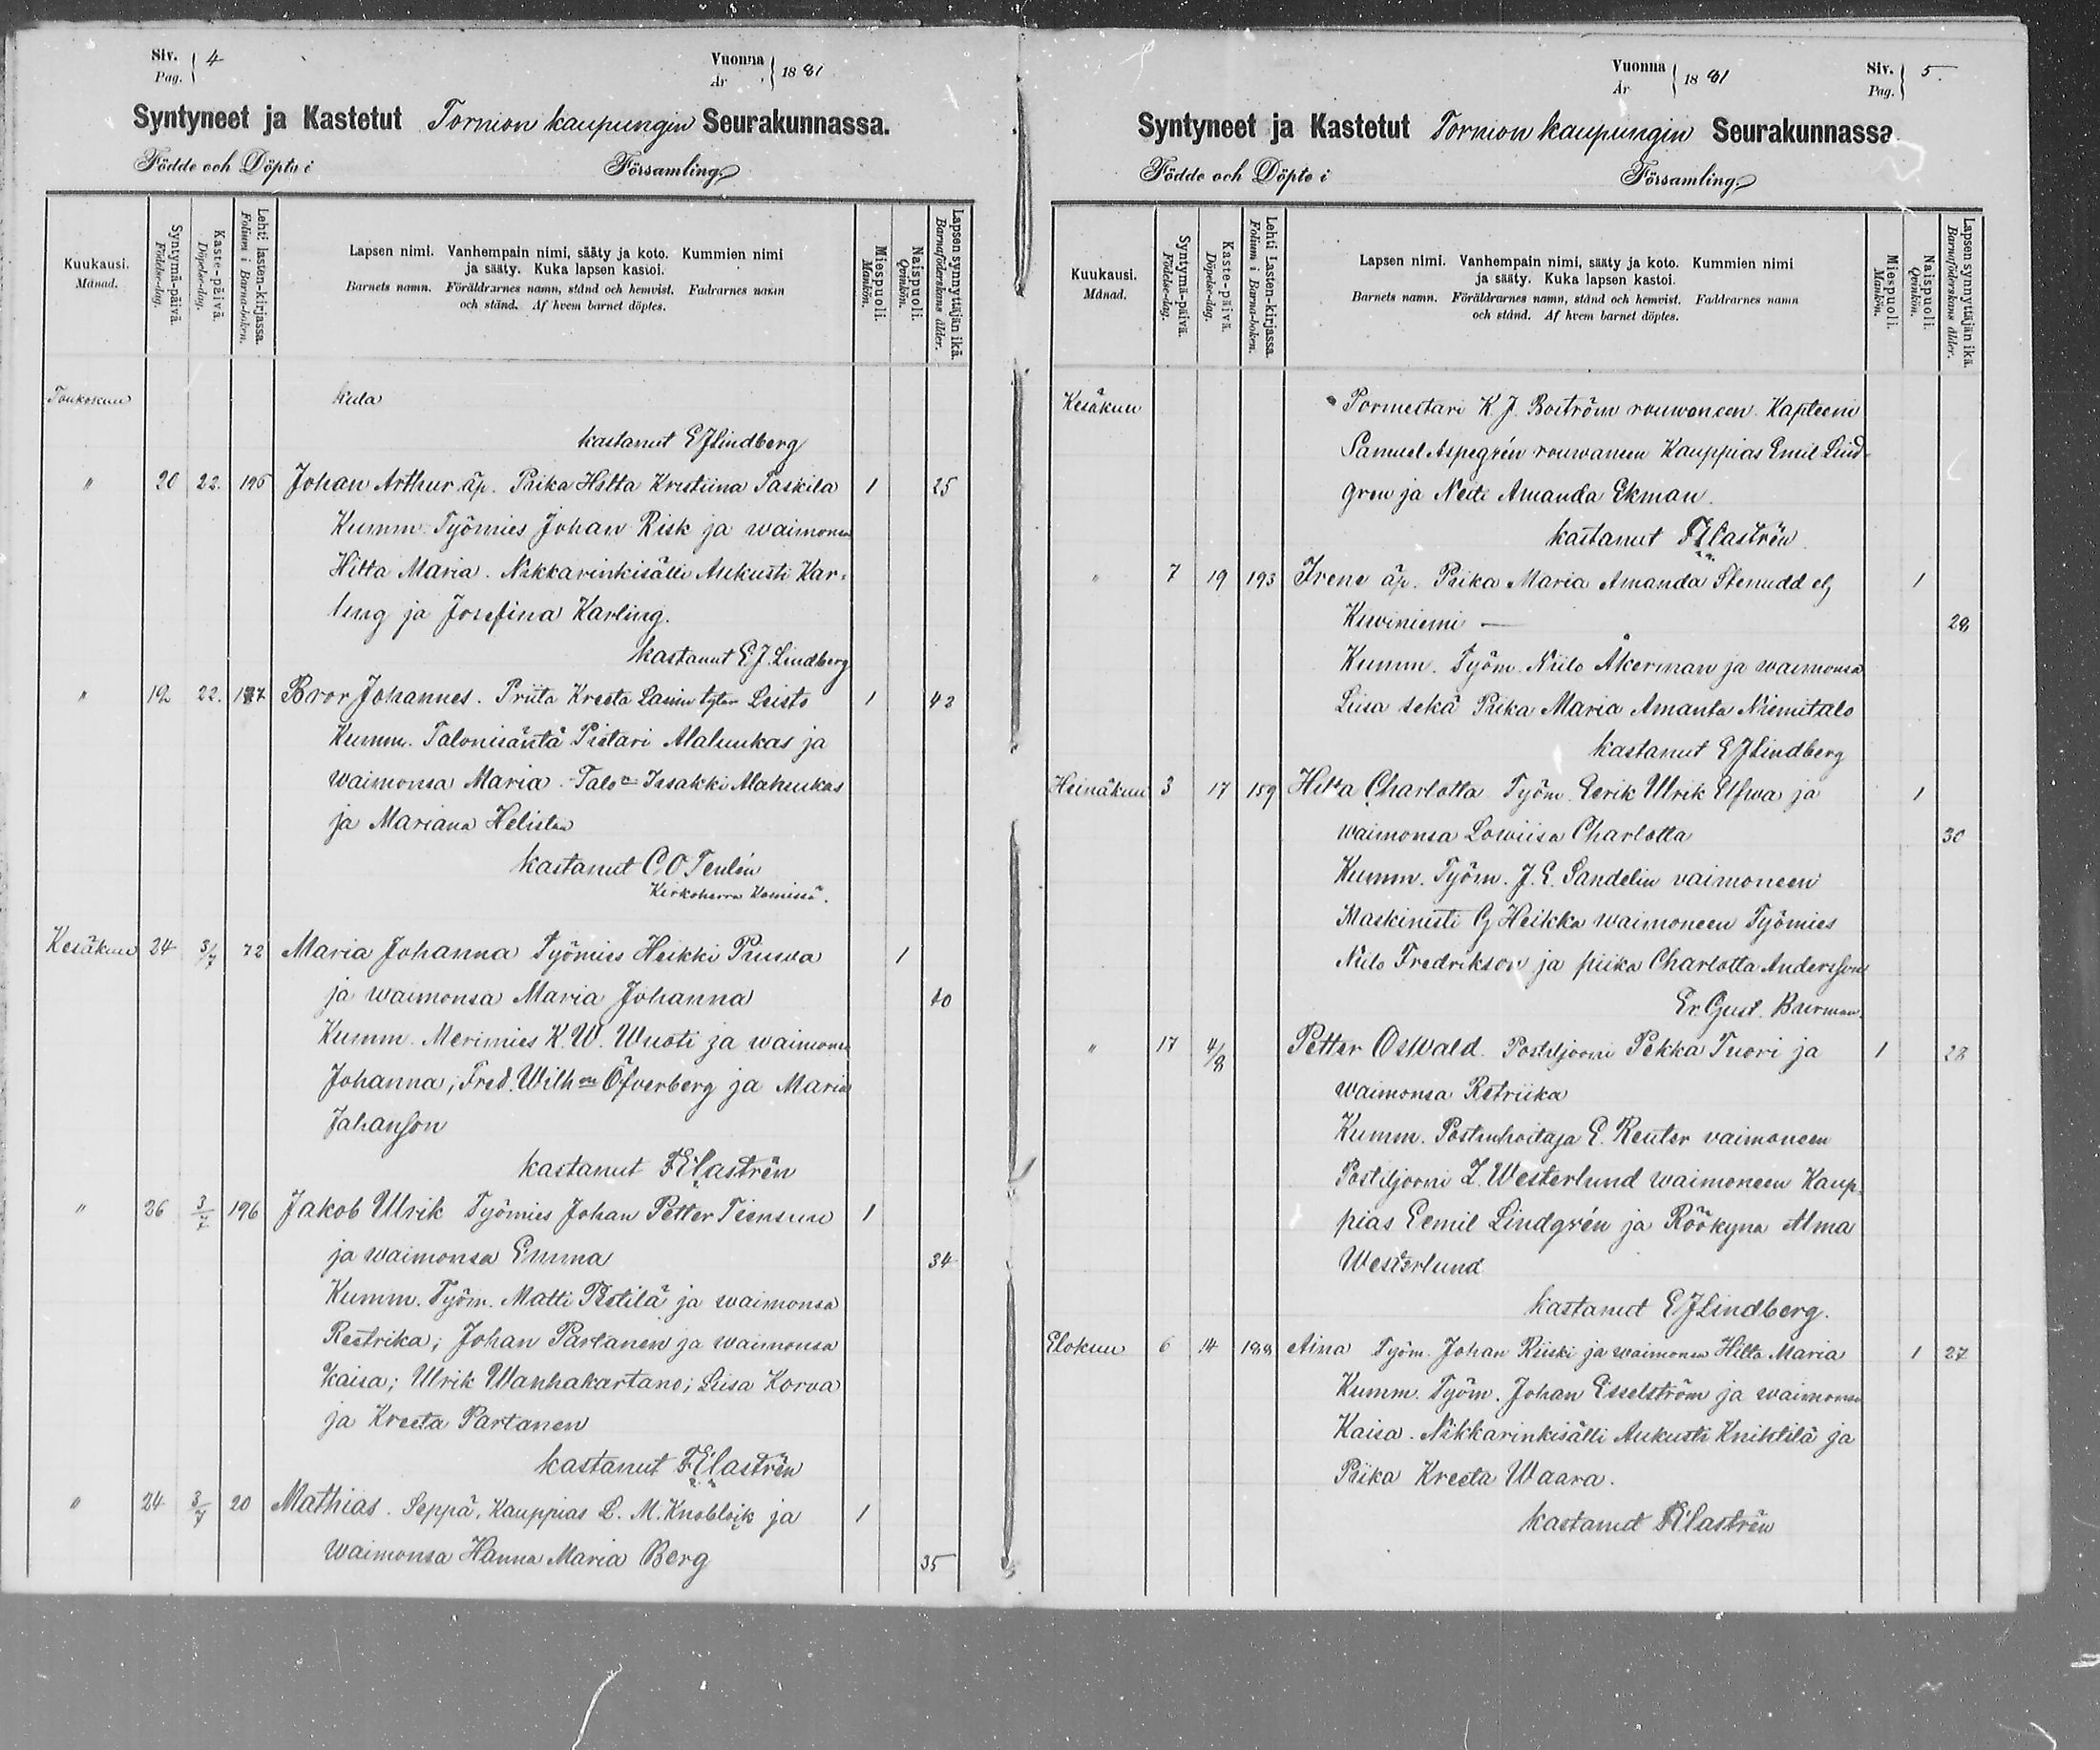 Siv. 4
Pag.
Vuonna 1881
År
Syntyneet ja Kastetut Tornion kaupungin Seurakunnassa.
Födde och Döpte i Församling
Kuukausi.
Månad.
Syntymä-päivä.
Födelse-dag.
Kaste-päivä.
Döpelse-dag.
Lehti lasten-kirjassa.
Folium i Barna-boken.
Lapsen nimi. Vanhempain nimi, sääty ja koto. Kummien nimi
ja sääty. Kuka lapsen kastoi.
Barnets namn. Föräldrarnes namn, stånd och hemvist. Fadrarnes namn
och stånd. Af hvem barnet döptes.
Miespuoli.
Mankön.
Naispuoli.
Qvinkön.
Lapsen synnyttäjän ikä.
Barnaföderskans ålder.
Toukokuu
kastanut E J Lindberg
" 20 22. 196 Johan Arthur äp. Piika Hilta Kristiina Paskila 1 25
Kumm. Työmies Johan Risk ja waimonsa
Hilta Maria. Nikkarinkisälli Aukusti Kar-
ling ja Josefina Karling.
kastanut E. J. Lindberg
" 12 22. 187 Bror Johannes. Priita Kreeta Laurin tytär Leisto 1 42
Kumm. Talonisäntä Pietari Alaluukas ja
waimonsa Maria. Talo Isakki Alaluukas
ja Mariana Helisten
kastanut C O
Kirkoherra Kemissä.
Kesäkuu 24 3/7 72 Maria Johanna Työmies Heikki 1
ja waimonsa Maria Johanna 40
Kumm. Merimies K. W. Wuoti ja waimonsa
Johanna; Fred. Wilh Öfverberg ja Maria
Johanson
kastanut F E Clastrén
" 26 3/7 196 Jakob Ulrik Työmies Johan Petter Tiensuu 1
ja waimonsa Emma 34
Kumm. Työm. Matti Pistilä ja waimonsa
Reetrika; Johan Partanen ja waimonsa
Kaisa; Ulrik Wanhakartano; Liisa Korva
ja Kreeta Partanen
kastanut F E Clastrén
" 24 3/7 20 Mathias. Seppä, Kauppias L. M. Knoblock ja 1
waimonsa Hanna Maria Berg 35
Vuonna 1881
År
Siv. 5.
Pag.
Syntyneet ja Kastetut Tornion kaupungin Seurakunnassa.
Födde och Döpte i Församling
Kuukausi.
Månad.
Syntymä-päivä.
Födelse-dag.
Kaste-päivä.
Döpelse-dag.
Lehti Lasten-kirjassa.
Folium i Barna-boken.
Lapsen nimi. Vanhempain nimi, sääty ja koto. Kummien nimi
ja sääty. Kuka lapsen kastoi.
Barnets namn. Föräldrarnes namn, stånd och hemvist. Faddrarnes namn
och stånd. Af hvem barnet döptes.
Miespuoli.
Mankön.
Naispuoli.
Qvinkön.
Lapsen synnyttäjän ikä.
Barnaföderskans ålder.
Kesäkuu Pormestari K. J. Boström rouwaneen Kapteeni
Samuel Aspegrén rouwaneen Kauppias Emil Lind-
gren ja Neiti Amanda Ekman.
kastanut F E Clastrén
" 7 19 193 Irene äp. Piika Maria Amanda Stenudd elj 1
Kiviniemi — 28
Kumm. Työm. Niilo Åkerman ja waimonsa
Liisa sekä Piika Maria Amanta Niemitalo
kastanut E J Lindberg
Heinäkuu 3 17 159 Hilta Charlotta Työm. Eerik Ulrik Elfwa ja 1
waimonsa Lowiisa Charlotta 30
Kumm. Työm. J. E. Sandelin vaimoneen
Maskinisti G Heikka waimoneen Työmies
Niilo Fredrikson ja piika Charlotta Andersson
Er. Gust. Burman.
" 17 4/8 Petter Oswald. Postiljooni Pekka Tuori ja 1 28
waimonsa Retriika
Kumm. Postinhoitaja E. Reuter vaimoneen
Postiljooni Z. Westerlund waimoneen Kaup-
pias Eemil Lindgrén ja Röökyna Alma
Westerlund
kastanut E J Lindberg.
Elokuu 6 14 188 Aina Työm. Johan Riiski ja waimonsa Hilta Maria 1 27
Kumm. Työm. Johan Esselström ja waimonsa
Kaisa. Nikkarinkisälli Aukusti Knihtilä ja
Piika Kreeta Waara.
kastanut F E Clastrén